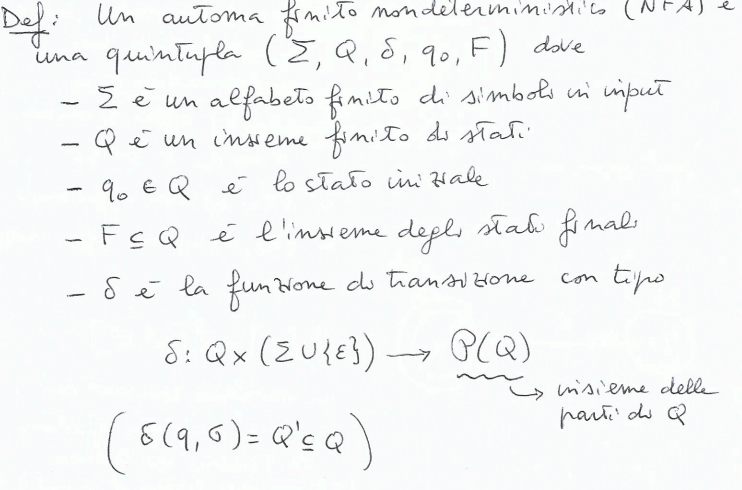 Def: Un automa finito nondeterministico (NFA) è
una quintupla (Σ, Q, δ, q₀, F) dove
- Σ è un alfabeto finito di simboli in input
- Q è un insieme finito di stati
- q₀ ∈ Q è lo stato iniziale
- F ⊆ Q è l'insieme degli stati finali
- δ è la funzione di transizione con tipo
δ: Q × (Σ ∪ {ε}) → P(Q)
↳ insieme delle
parti di Q
(δ(q, σ) = Q' ⊆ Q)